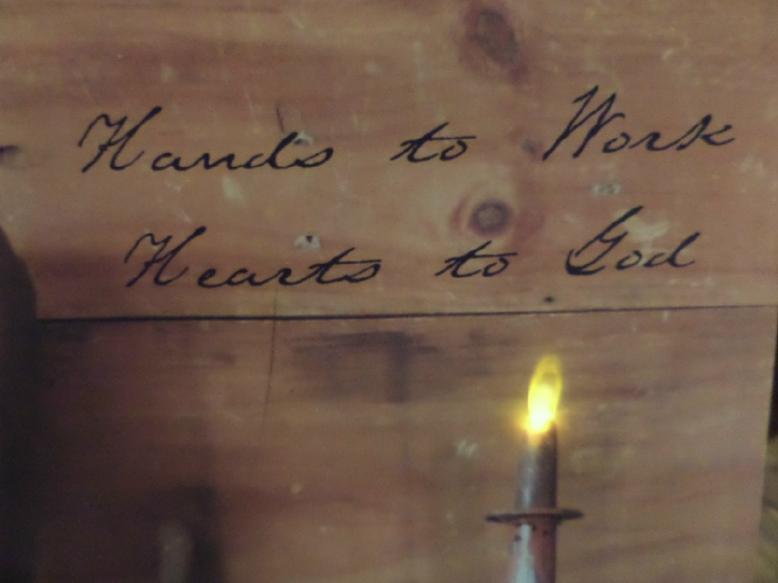 Hands to Work
Hearts to God